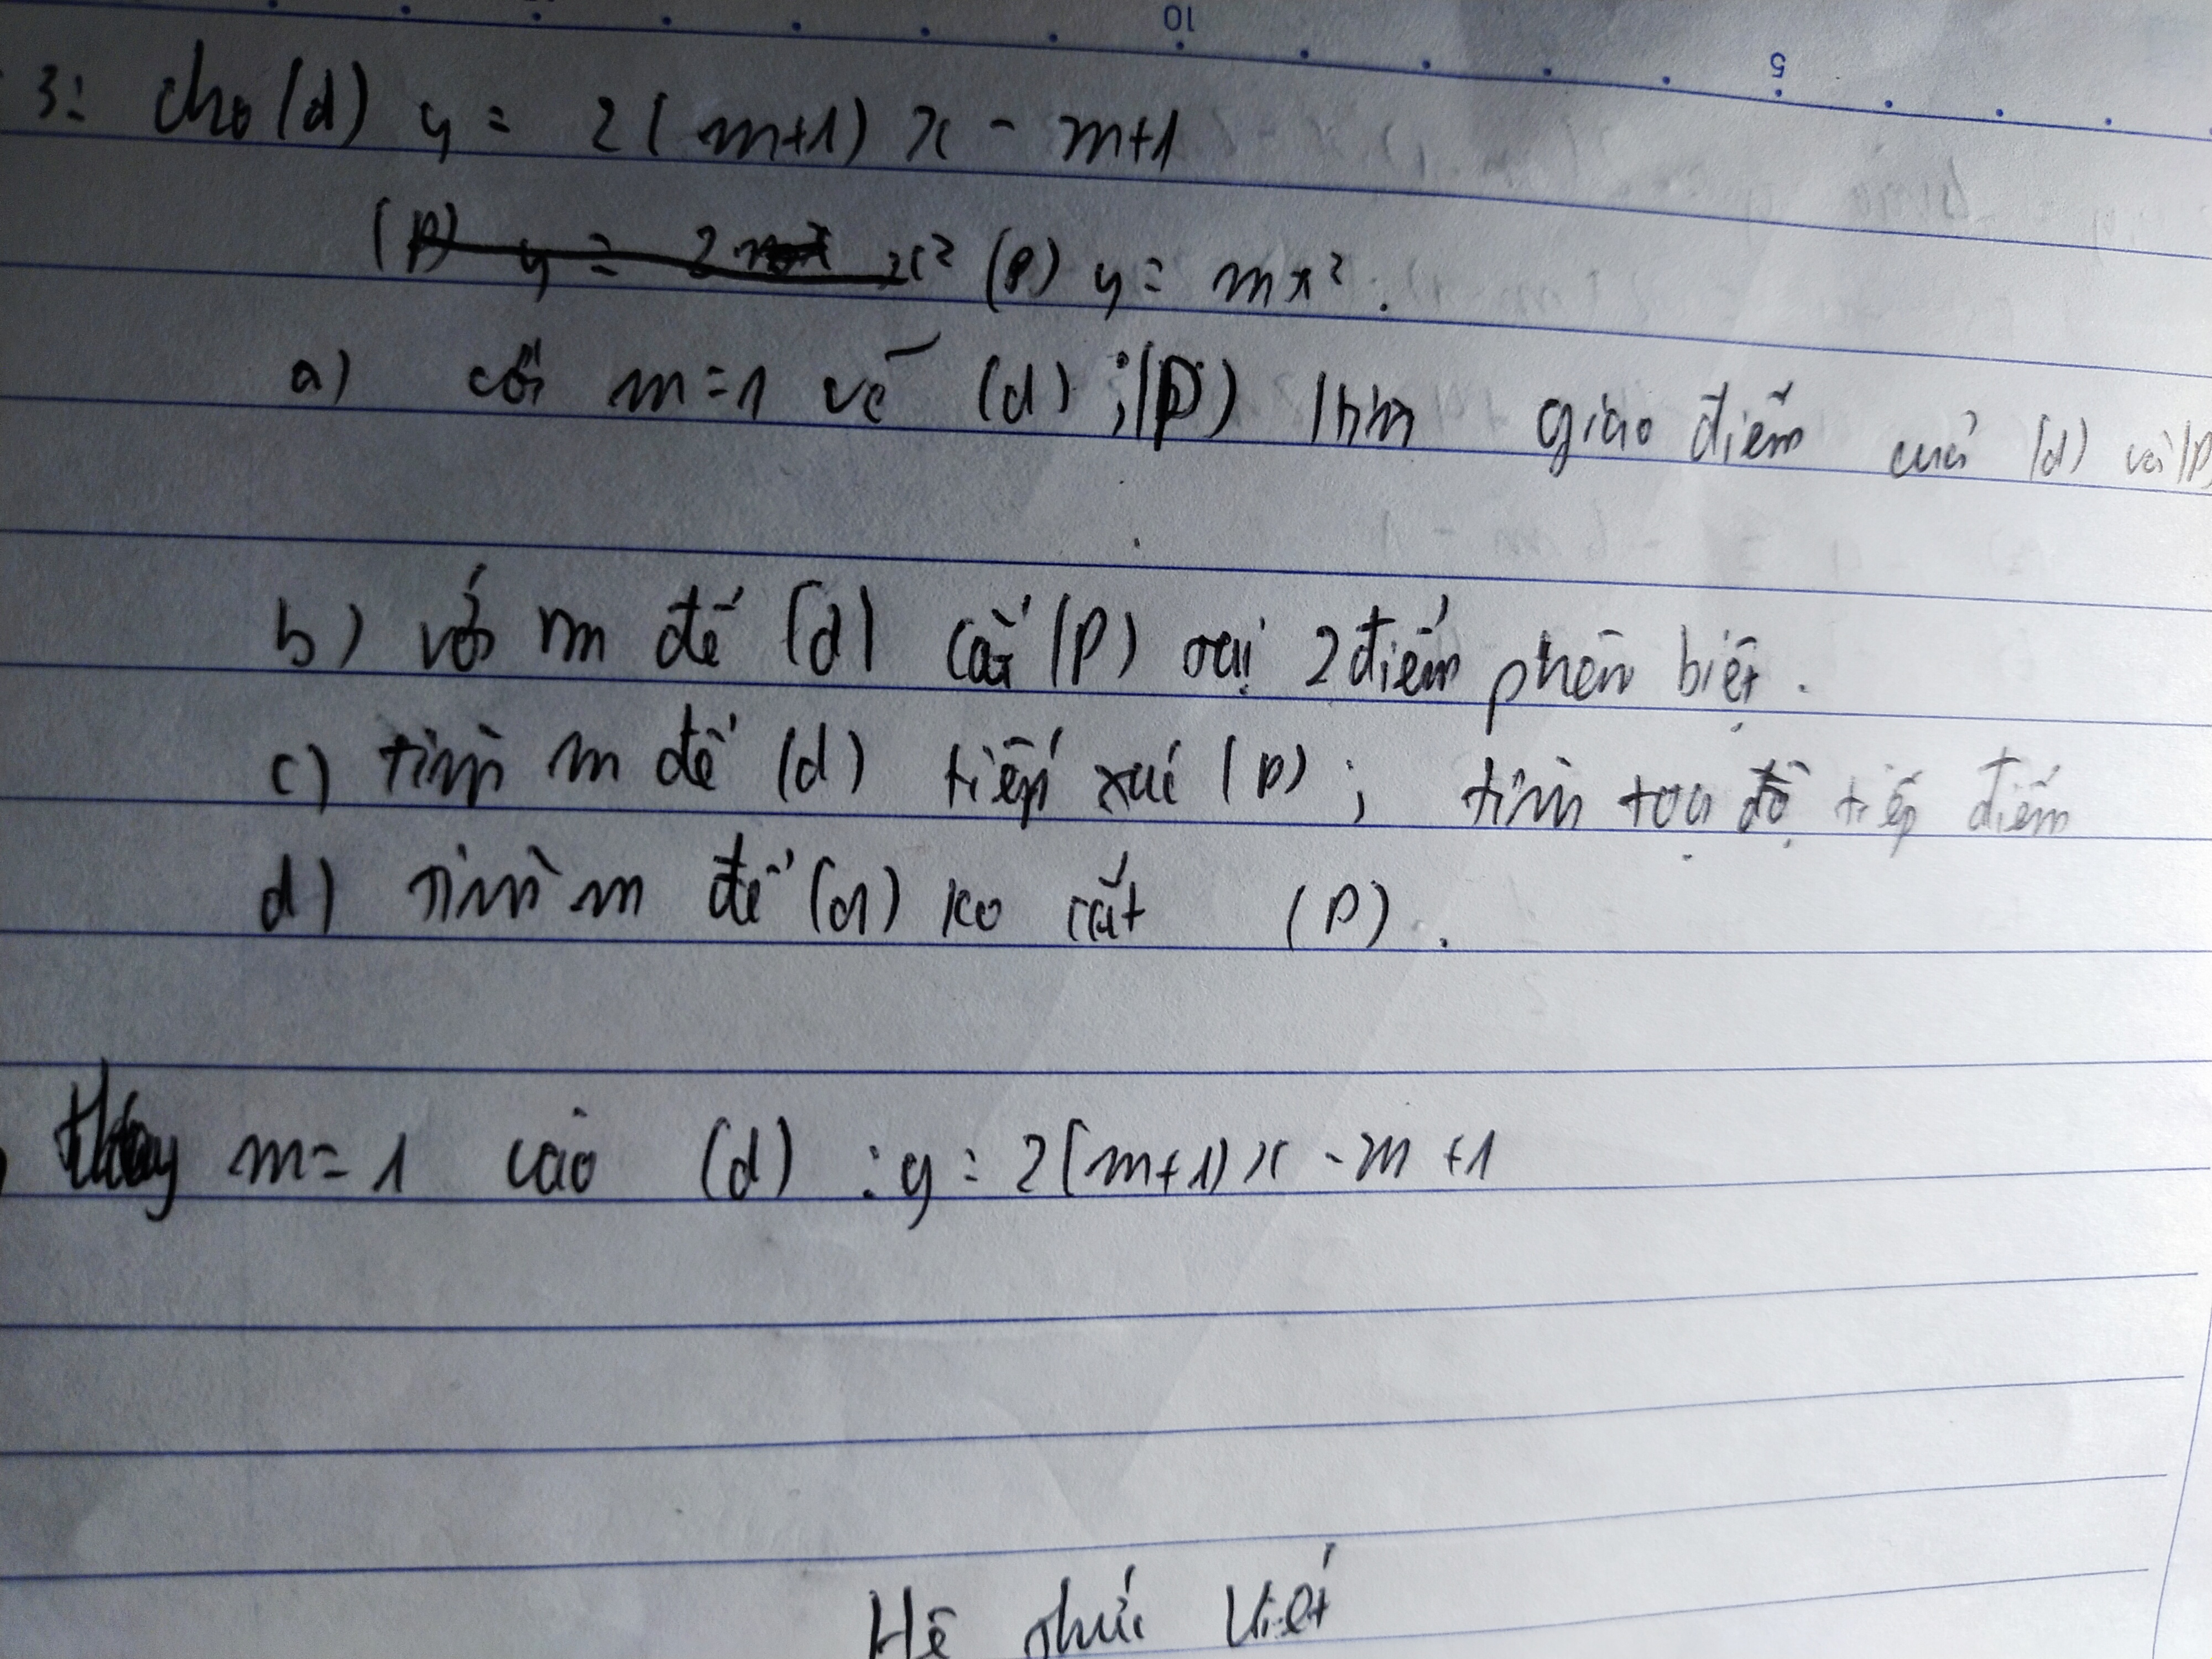 10 5
3: cho (d) y = 2(m+1)x - m+1
(P) y = 2 x² (P) y = mx².
a) với m=1 vẽ (d) ; (P) tìm giao điểm của (d) và (P)
b) với m để (d) cắt (P) tại 2 điểm phên biệt.
c) tìm m để (d) tiếp xúc (P) ; tìm toạ độ tiếp điểm
d) tìm m để (d) ko cắt (P).
thay m=1 vào (d) : y = 2(m+1)x - m +1
Hệ thức Viét